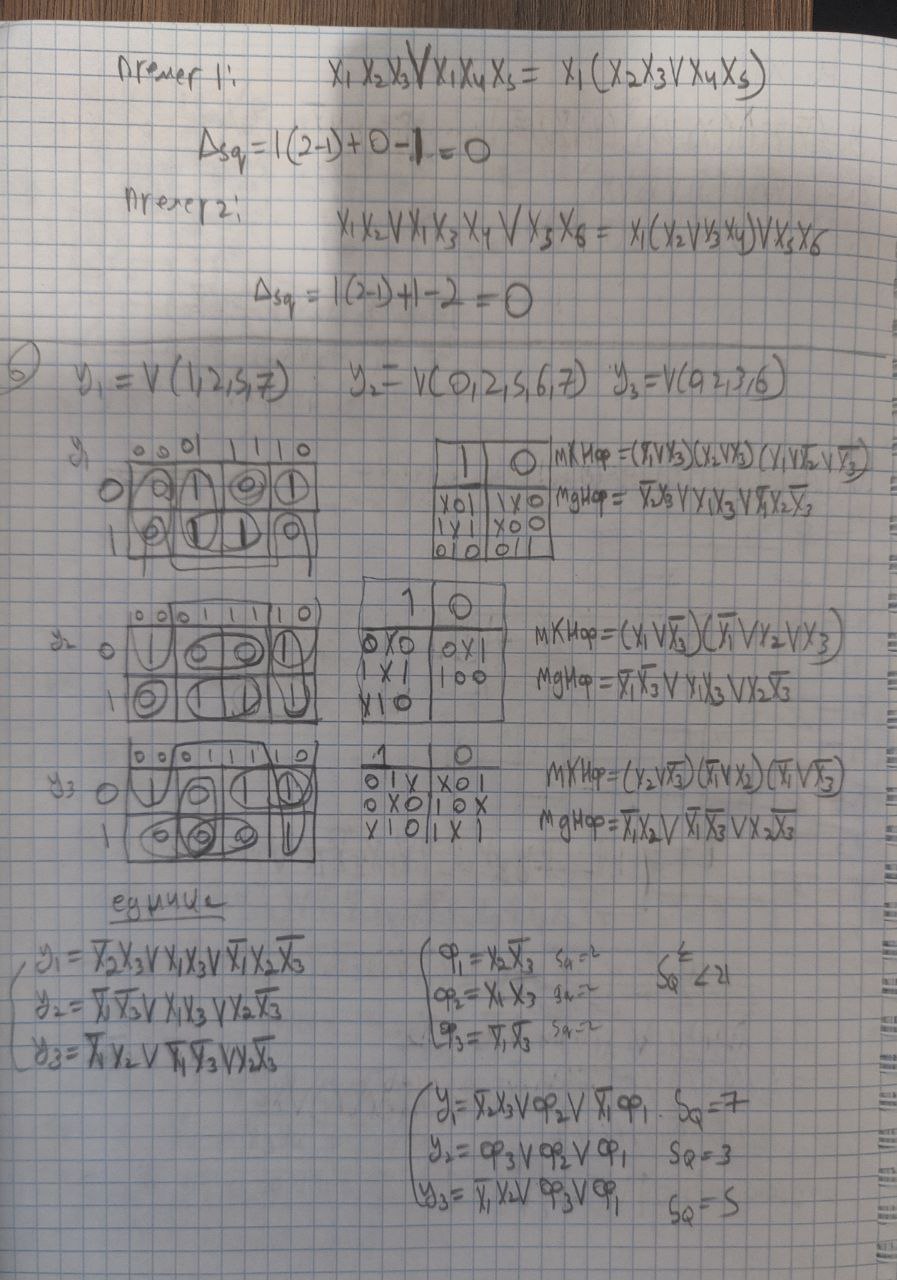 Пример 1: X₁X₂X₃VX₁X₄X₅ = X₁(X₂X₃VX₄X₅)
Δsq = 1(2-1)+0-1=0
Пример 2:
X₁X₂VX₁X₃X₄VX₅X₆ = X₁(X₂VX₃X₄)VX₅X₆
Δsq = 1(2-1)+1-2=0
6 y₁ = V(1,2,5,7) y₂ = V(0,2,5,6,7) y₃=V(0,2,3,6)
y₁ 00 01 11 10
0 0 1 0 1
1 0 1 1 0
1 0
X01 1X0
1X1 X00
010 011
МКНФ=(X̅₁VX₃)(X₂VX₃)(X₁VX̅₂VX̅₃)
МДНФ= X̅₂X₃VX₁X₃VX̅₁X₂X̅₃
y₂ 00 01 11 10
0 1 0 0 1
1 0 1 1 1
1 0
0X0 0X1
1X1 100
X10
МКНФ=(X₁VX̅₃)(X̅₁VX₂VX₃)
МДНФ=X̅₁X̅₃VX₁X₃VX₂X̅₃
y₃ 00 01 11 10
0 1 0 1 1
1 0 0 0 1
1 0
01X X01
0X0 10X
X10 1X1
МКНФ=(X₂VX̅₃)(X̅₁VX₂)(X̅₁VX̅₃)
МДНФ=X̅₁X₂VX̅₁X̅₃VX₂X̅₃
y₁= X̅₂X₃VX₁X₃VX̅₁X₂X̅₃
y₂= X̅₁X̅₃VX₁X₃VX₂X̅₃
y₃= X̅₁X₂VX̅₁X̅₃VX₂X̅₃
φ₁=X₂X̅₃ Sq=2
φ₂=X₁X₃ Sq=2
φ₃=X̅₁X̅₃ Sq=2
y₁=X̅₂X₃Vφ₂VX̅₁φ₁ SQ=7
y₂= φ₃Vφ₂Vφ₁ SQ=3
y₃= X̅₁X₂Vφ₃Vφ₁ SQ=5